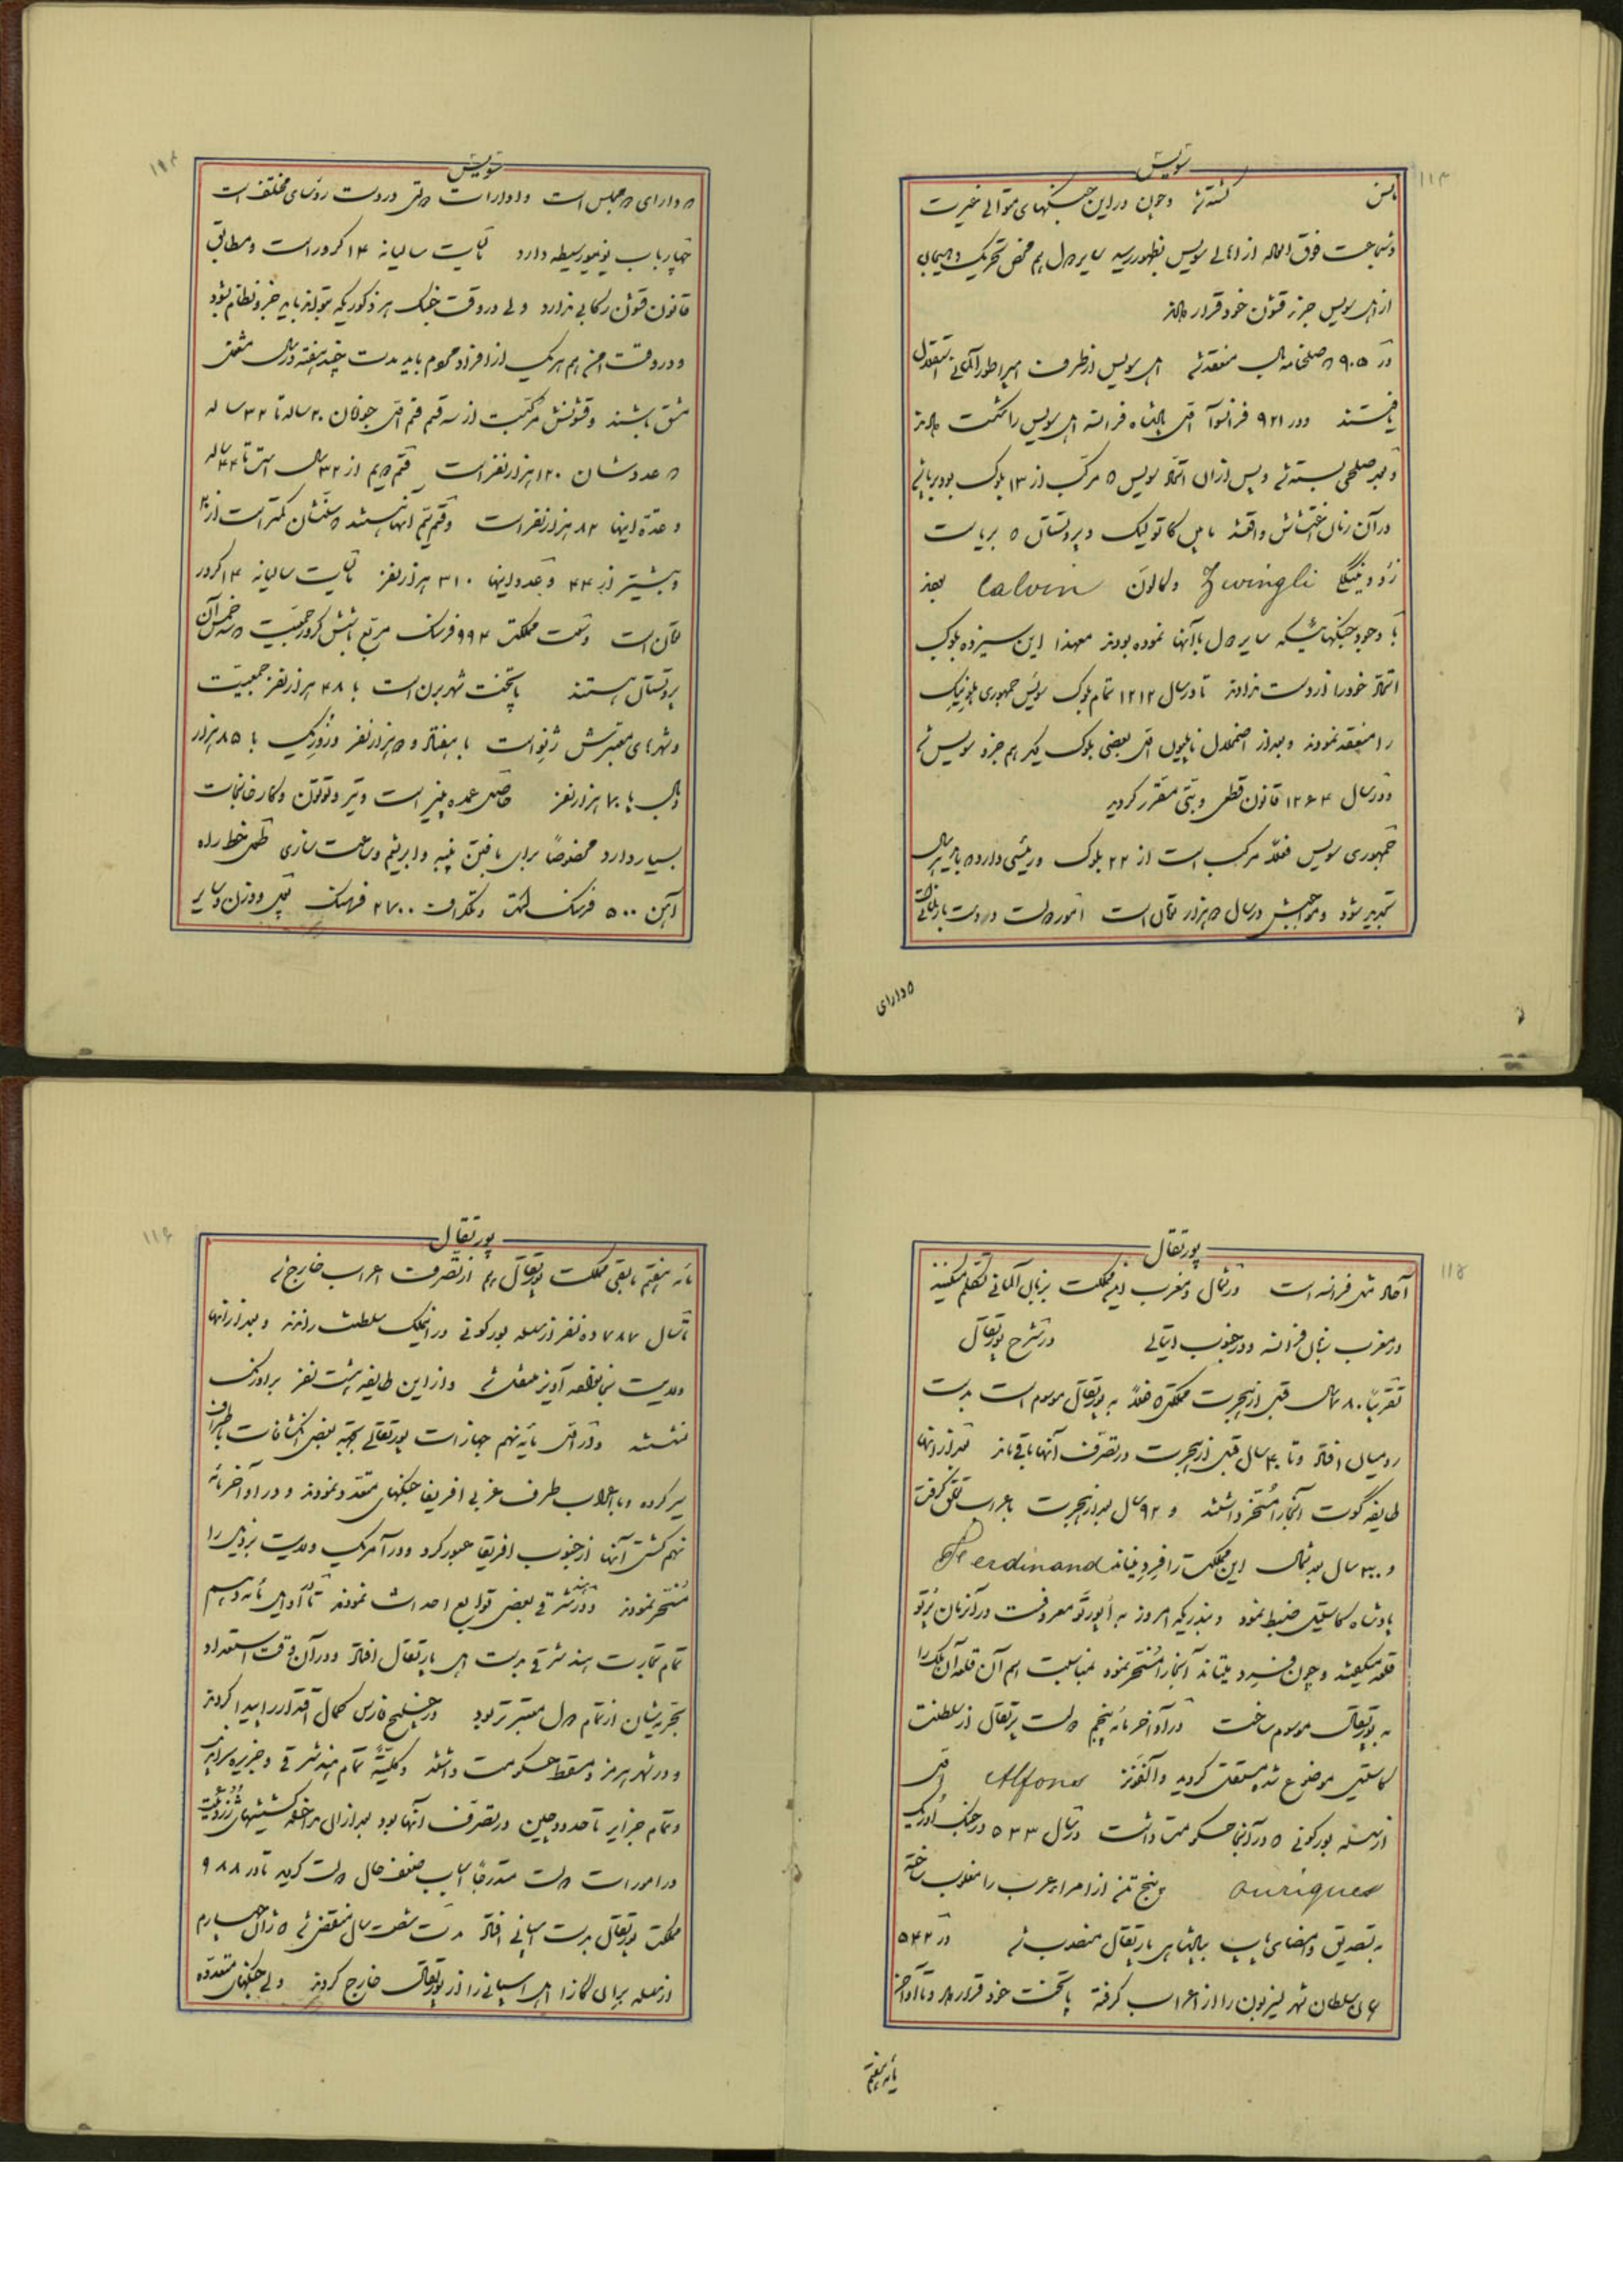 ۱۱۳
سویس
کشته شد و چون در این جنگهای متوالی غیرت
و شجاعت فوق العاده از اهالی سویس بظهور رسید سایر دول هم محض تحریک
از اهل سویس جزء قشون خود قرار دادند
در ۹۰۵ منعقد شد اهل سویس از طرف امپراطور آلمانی استقلال
یافتند و در ۹۲۱ فرانسوآ اول پادشاه فرانسه اهل سویس را شکست دادند
و بعد صلحی بسته شد و پس از آن اتحاد سویس که مرکب از ۱۳ بلوک بود
در آن زمان اغتشاش واقعشد مابین کاتولیک و پروتستان که بریاست
Zwingli و کالون Calvin بودند
با وجود جنگهائیکه سایر دول با آنها نموده بودند معهذا این سیزده بلوک
اتحاد خود را از دست ندادند تا در سال ۱۲۱۲ تمام بلوک سویس جمهوری
را منعقد نمودند و بعد از اضمحلال ناپلیون اول بعضی بلوک دیگر هم جزء سویس شد
و در سال ۱۲۶۴ قانون قطعی مقرر گردید
جمهوری سویس فعلاً مرکب است از ۲۲ بلوک و رئیسی دارد که باید هر سال
تجدید شود و مواجبش در سال هزار تومان است امور دولت در دست پارلمانی است
که دارای
سویس
که دارای دو مجلس است و ادارات دولتی در دست رؤسای مختلف است
مالیات سالیانه ۱۴ کرور است و مطابق
قانون قشون رکابی ندارد ولی در وقت جنگ هر ذکوریکه بتواند باید جزء نظام بشود
و در وقت امن هم هر یک از افراد عموم باید مدت چند هفته در سال مشغول
مشق باشند و قشونش مرکبست از سه قسم قسم اول جوانان ۲۰ ساله تا ۳۲ ساله
که عددشان ۱۲۰ هزار نفر است قسم دوم از ۳۲ سال است تا ۴۴ ساله
و عده اینها ۸۲ هزار نفر است و قسم سیم آنها هستند که سنشان کمتر است از ۲۰
و بیشتر از ۴۴ و عدد اینها ۳۱۰ هزار نفر مالیات سالیانه ۱۴ کرور
تومان است وسعت مملکت ۹۹۴ فرسنگ مربع با شش کرور جمعیت که سه خمس آن
پروتستان هستند پایتخت شهر برن است با ۴۸ هزار نفر جمعیت
و شهرهای معتبرش ژنو است با هفتاد و دو هزار نفر و زوریک با ۸۵ هزار
و بال با ۷۰ هزار نفر حاصل عمده پنیر است و توتون و کارخانجات
بسیار دارد مخصوصاً برای بافتن پنبه و ابریشم و ساعت سازی طول خط راه
آهن ۵۰۰ فرسنگ است و تلگراف ۲۷۰۰ فرسنگ پول و وزن و سایر
۱۱۵
پورتقال
آحاد مثل فرانسه است در شمال و مغرب این مملکت بزبان آلمانی تکلم میکنند
در مغرب بزبان فرانسه و در جنوب ایتالی در شرح پورتقال
تقریباً ۸۰۰ سال قبل از هجرت مملکتی که فعلاً به پورتقال موسوم است بدست
رومیان افتاد و تا سال قبل از هجرت در تصرف آنها باقی ماند بعد از آنها
طایفه گوت آنجا را مسخر داشتند و ۹۲ سال بعد از هجرت باعراب تعلق گرفت
و ۳۰۰ سال بعد شمال این مملکت را فردیناند Ferdinand
پادشاه کاستیل ضبط نمود و بندریکه امروز به اپورتو معروفست در آن زمان پرتو
قلعه میگفتند و چون فردیناند آنجا را مسخر نمود بمناسبت اسم آن قلعه آن ملک را
به پورتقال موسوم ساخت در اواخر مائه پنجم دولت پرتقال از سلطنت
کاستیل موضوع شده مستقل گردید و آلفونز Alfons اول
از سلسله بورگونی که در آنجا حکومت داشت در سال ۵۳۳ در جنگ اوریک
ouriques پنج تن از امراء عرب را مغلوب ساخته
به تصدیق و امضای پاپ بپادشاهی پارتقال منصوب شد در ۵۴۲
سلطان شهر لیزبون را از اعراب گرفته پایتخت خود قرار داد و تا اواخر
مائه هفتم
۱۱۶
پورتقال
مائه هفتم مابقی مملکت پورتقال هم از تصرف اعراب خارج شد
تا سال ۷۸۷ ده نفر از سلسله بورگونی در اینملک سلطنت راندند و بعد از آنها
ولایت بخانواده آویز منتقل شد و از این طایفه هشت نفر بر اورنگ
نشستند و در اوایل مائه نهم جهازات پورتقالی بجهت بعضی اکتشافات باطراف
سیر کرده و با اعراب طرف غربی افریقا جنگهای متعدد نمودند و در اواخر مائه
نهم کشتی آنها از جنوب افریقا عبور کرد و در آمریک ولایت برزیل را
مسخر نمودند و در هند شرقی بعضی توابع احداث نمودند تا در اوایل مائه دهم
تمام تجارت هند شرقی بدست اهل پارتقال افتاد و در آن وقت استعداد
بحریه شان از تمام دول معتبرتر بود و در خلیج فارس کمال اقتدار را پیدا کردند
و در شهر هرمز و مسقط حکومت داشتند و کلیةً تمام هند شرقی و جزیره سراندیب
و تمام جزایر تا حدود چین در تصرف آنها بود بعد از آن مداخله کشیشهای ژزوئیت
در امورات دولت متدرجاً اسباب ضعف حال دولت گردید تا در ۹۸۸
مملکت پورتقال بدست اسپانی افتاد مدت شصت سال منقضی شد که ژان چهارم
از سلسله براگانزا اهل اسپانی را از پورتقال خارج کردند ولی جنگهای متعدده